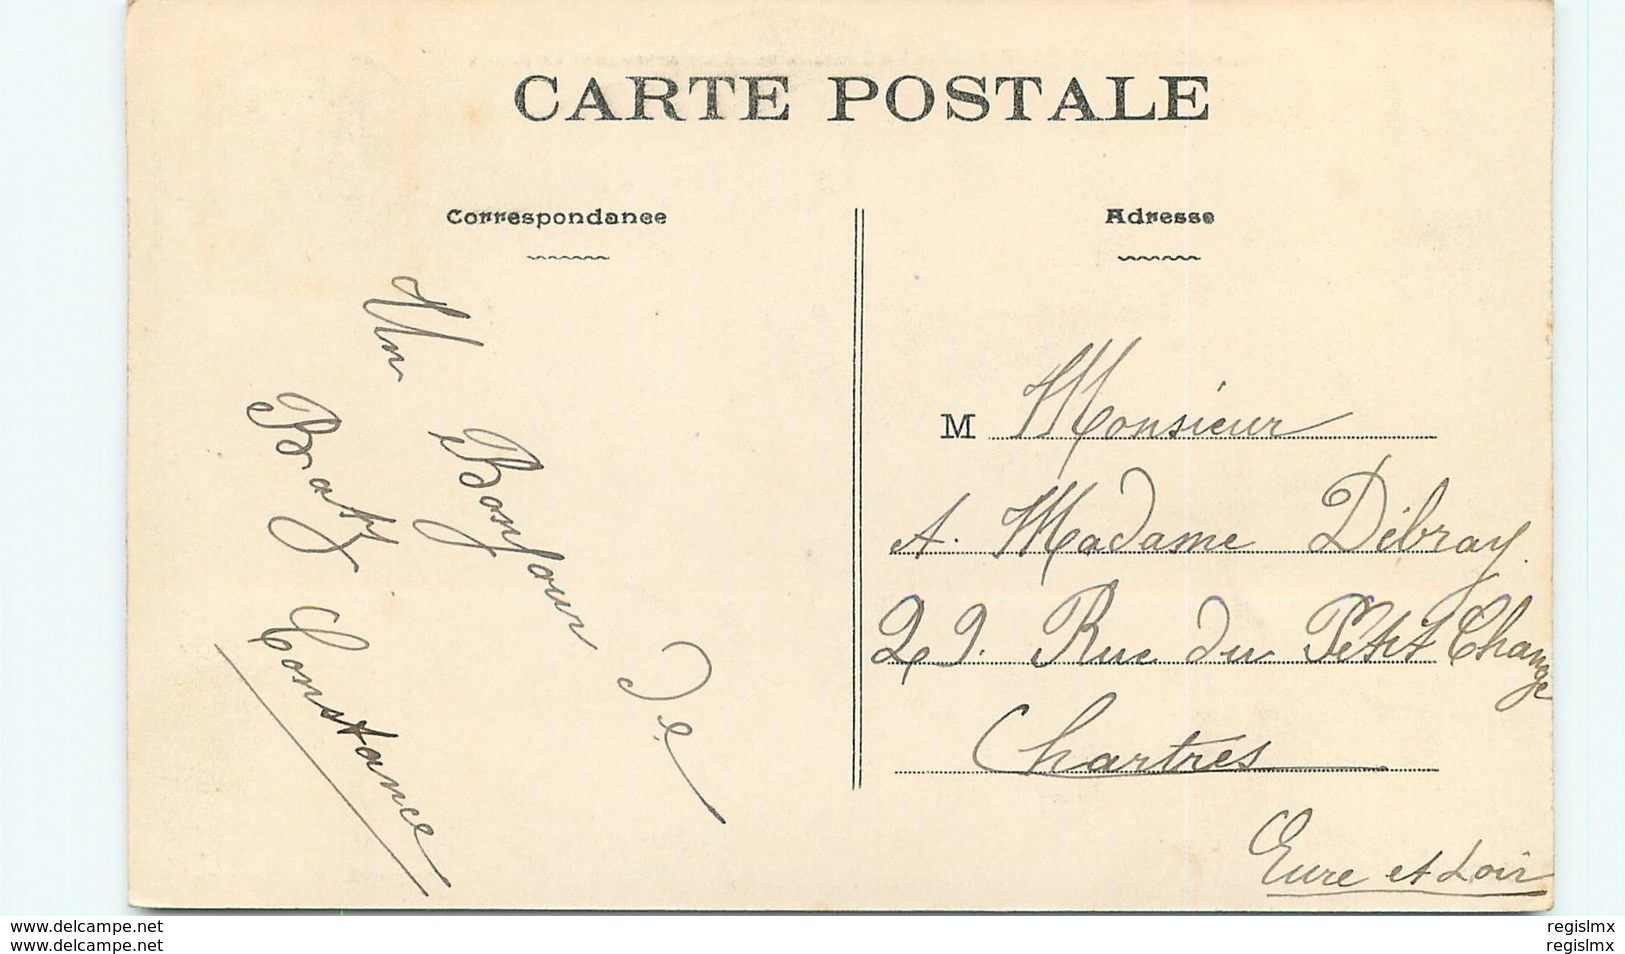 CARTE POSTALE
Correspondance
Un Bonjour De
Batz
Constance
Adresse
M Monsieur
et Madame Débray
29. Rue du Petit Change
Chartres
Eure et Loir
www.delcampe.net
www.delcampe.net
regislmx
regislmx